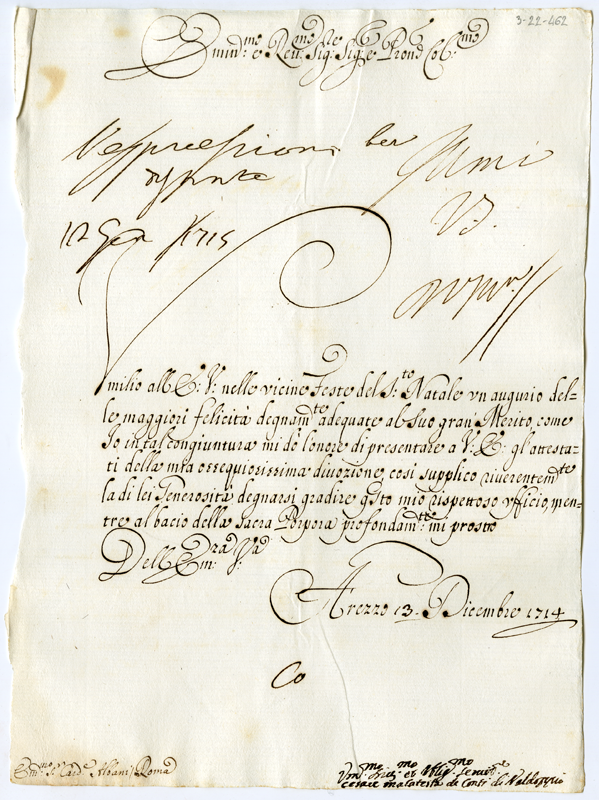 3-22-462
Emin:mo e Reu:mo Sig:re Sig:re e Pron Col:mo
l'espressioni
12 Gen 1715
Umilio all E: V: nelle vicine Feste del S:to Natale vn augurio del=
le maggiori felicità degnam:te adequate al suo gran Merito, come
Io in tal congiuntura mi dò l'onore di presentare a V: E: gl'attesta=
ti della mia ossequiosissima divozione, così supplico riverentem:te
la di lei Generosità degnarsi gradire q'sto mio rispettoso vfficio, men=
tre al bacio della Sacra Porpora profondam:te mi prostro
Dell Em:ra V:ra
Arezzo 13. Dicembre 1714
Co
Em:mo S: Card:e Albani Roma
Vm:mo Diu:mo et Oblig:mo Seruit:re
Cesare Malatesta de Conti di